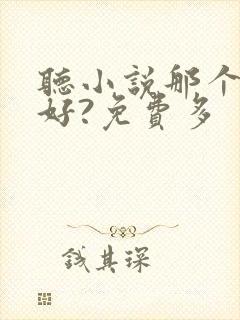 聽小說那个
好?免費多
钱其琛